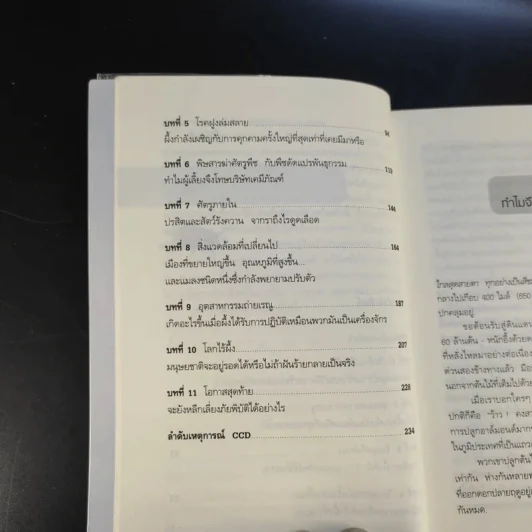 บทที่ 5 โรคฝูงล่มสลาย
ผึ้งกำลังเผชิญกับการคุกคามครั้งใหญ่ที่สุดเท่าที่เคยมีมาหรือ
บทที่ 6 พิษสารฆ่าศัตรูพืช กับพืชดัดแปรพันธุกรรม
ทำไมผู้เลี้ยงจึงโทษบริษัทเคมีภัณฑ์
บทที่ 7 ศัตรูภายใน 144
ปรสิตและสัตว์รังควาน จากราถึงไรดูดเลือด
บทที่ 8 สิ่งแวดล้อมที่เปลี่ยนไป 164
เมืองที่ขยายใหญ่ขึ้น อุณหภูมิที่สูงขึ้น...
และแมลงชนิดหนึ่งซึ่งกำลังพยายามปรับตัว
บทที่ 9 อุตสาหกรรมถ่ายเรณู 187
เกิดอะไรขึ้นเมื่อผึ้งได้รับการปฏิบัติเหมือนพวกมันเป็นเครื่องจักร
บทที่ 10 โลกไร้ผึ้ง 207
มนุษยชาติจะอยู่รอดได้หรือไม่ถ้าฝันร้ายกลายเป็นจริง
บทที่ 11 โอกาสสุดท้าย 228
จะยังหลีกเลี่ยงภัยพิบัติได้อย่างไร
ลำดับเหตุการณ์ CCD 234
ทำไมจึ
ใกล้สุดสายตา ทุกอย่างเป็นสีช
กลางไปเกือบ 400 ไมล์ (650
ปกคลุมอยู่
ขอต้อนรับสู่ดินแดน
60 ล้านต้น - หนักอึ้งด้วยด
ที่หลั่งไหลมาอย่างต่อเนื่อ
ด่วนสองข้างทางแล้ว มีอ
นอกจากต้นไม้ที่เต็มไปด้วย
เมื่อเราบอกใครๆ
ปกติก็คือ "ว้าว ! คงสว
การปลูกอาล์มอนด์มาก
ในภูมิประเทศที่เป็นแถว
พวกเขาปลูกต้นไ
เท่ากัน ห่างกันหลายฟ
ที่ออกดอกปลายฤดูอยู่
กันหมด.